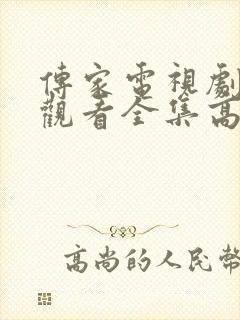 傳家電視劇
觀看全集高
高尚的人民幣